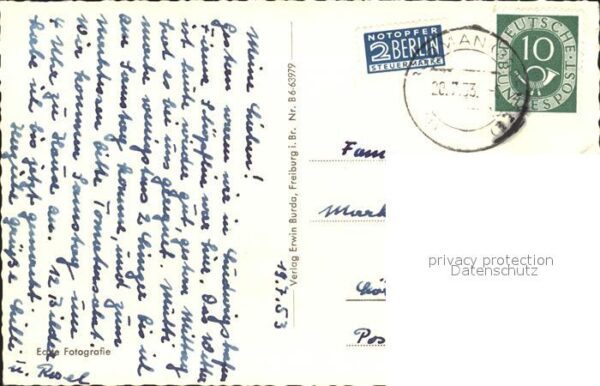 Meine Lieben!
Gestern waren wir in Ludwigshafen
Firma Stöpflin war hier. Das Wetter
ist heute wieder gut, gestern Mittag
hat es bei uns geregnet. Mutti
mache wenigstens 2 Dinger bis ich
am Samstag komme, und zum
Nachtessen bitte Tomatensalat
Wir kommen Samstag um
4 Uhr zu Hause an. 12 Bilder
habe ich bis jetzt gemacht.
Herzliche Grüße
u.
19.7.53
Echte Fotografie
Verlag Erwin Burda, Freiburg i. Br. Nr. B6-63979
NOTOPFER
2 BERLIN
STEUERMARKE
20.7.53.
DEUTSCHE
10
BUNDESPOST
Fam
Mark
Pos
privacy protection
Datenschutz